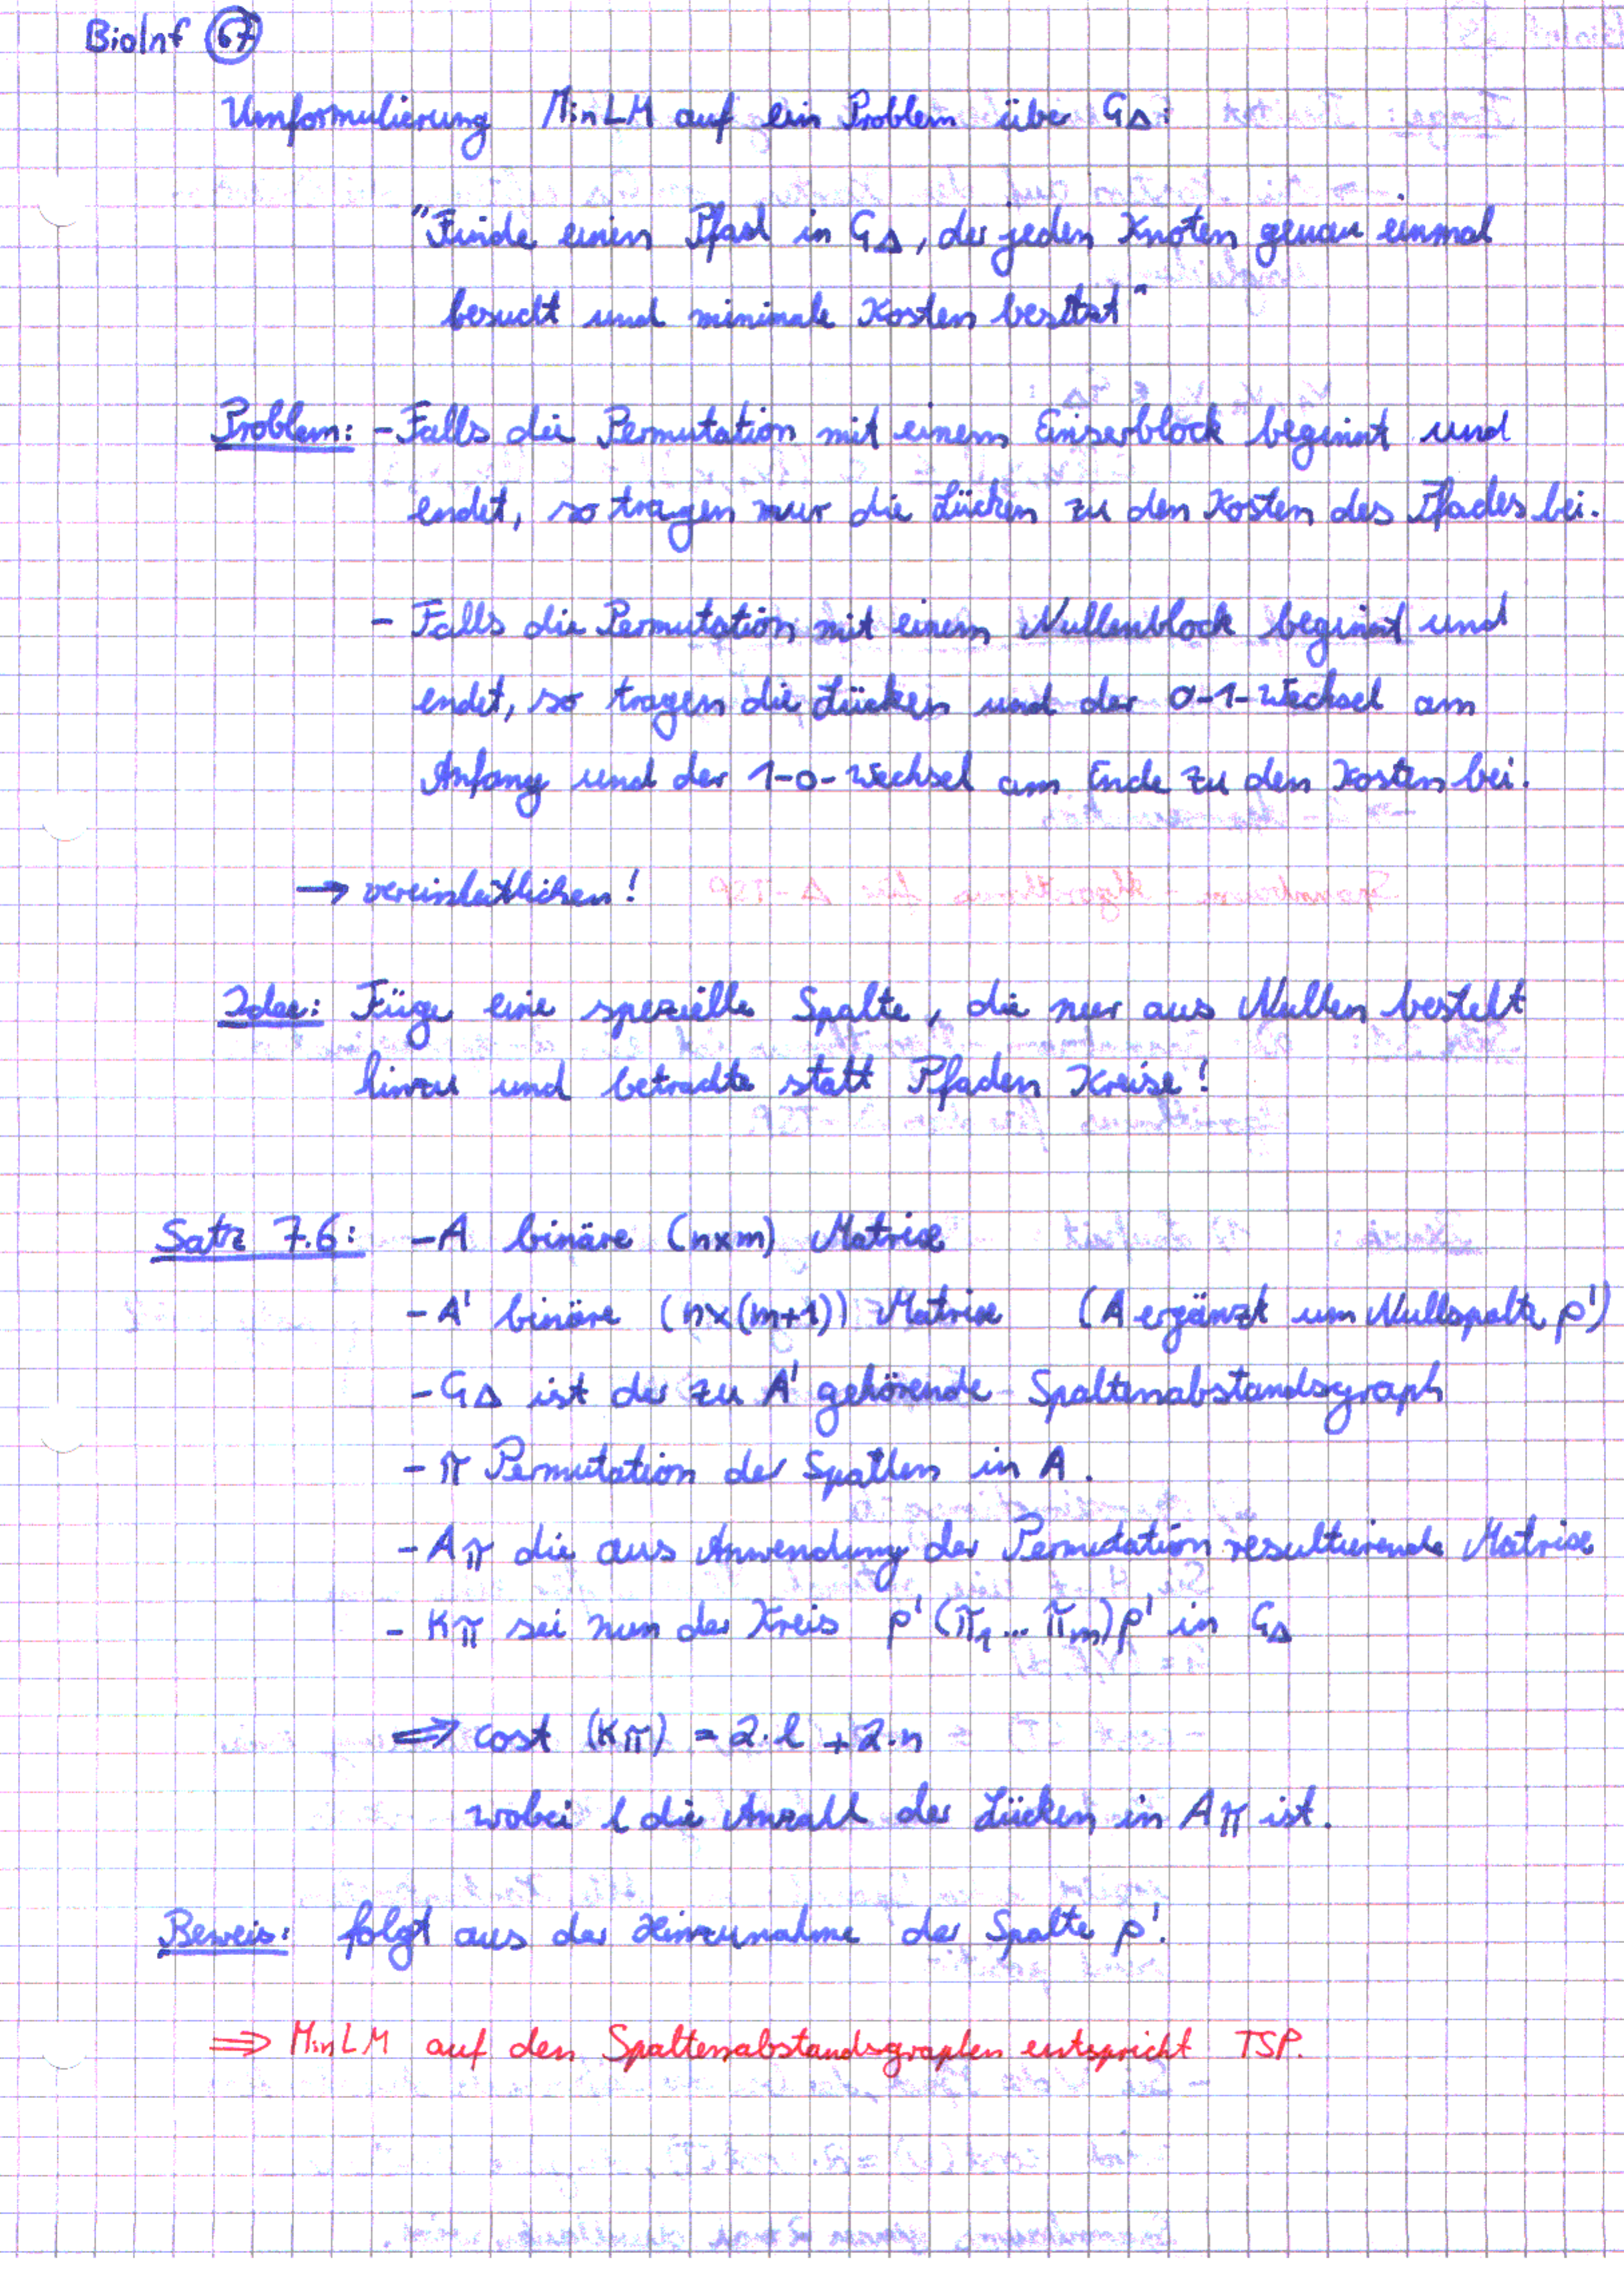 BioInf 67
Umformulierung MinLM auf ein Problem über G∆:
"Finde einen Pfad in G∆, der jeden Knoten genau einmal
besucht und minimale Kosten besitzt"
Problem: - Falls die Permutation mit einem Einserblock beginnt und
endet, so tragen nur die Lücken zu den Kosten des Pfades bei.
- Falls die Permutation mit einem Nullenblock beginnt und
endet, so tragen die Lücken und der 0-1-Wechsel am
Anfang und der 1-0-Wechsel am Ende zu den Kosten bei.
→ vereinheitlichen!
Idee: Füge eine spezielle Spalte, die nur aus Nullen besteht
hinzu und betrachte statt Pfaden Kreise!
Satz 7.6: - A binäre (n×m) Matrix
- A' binäre (n×(m+1)) Matrix (A ergänzt um Nullspalte p')
- G∆ ist der zu A' gehörende Spaltenabstandsgraph
- π Permutation der Spatlen in A.
- Aπ die aus Anwendung der Permutation resultierende Matrix
- Kπ sei nun der Kreis p'(π1...πm)p' in G∆
⇒ cost (Kπ) = 2·l + 2·n
wobei l die Anzahl der Lücken in Aπ ist.
Beweis: folgt aus der Hinzunahme der Spalte p'.
⇒ MinLM auf den Spaltenabstandsgraphen entspricht TSP.